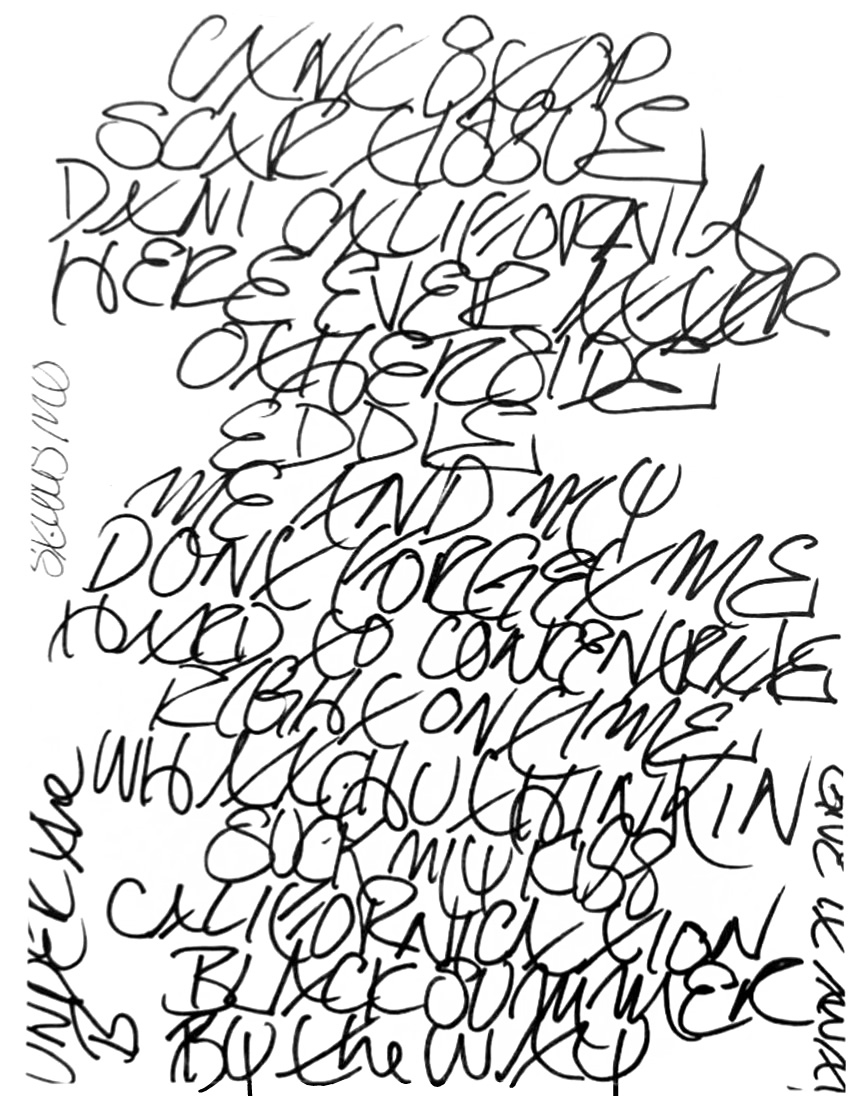 CANT STOP
SCAR TISSUE
DANI CALIFORNIA
HERE EVER AFTER
OTHERSIDE
EDDIE
ME AND MY
DONT FORGET ME
HARD TO CONCENTRATE
RIGHT ON TIME
WHATCHU THINKIN
SUCK MY KISS
CALIFORNICATION
BLACK SUMMER
BY the WAY
UNDER the
B
GIVE IT AWAY